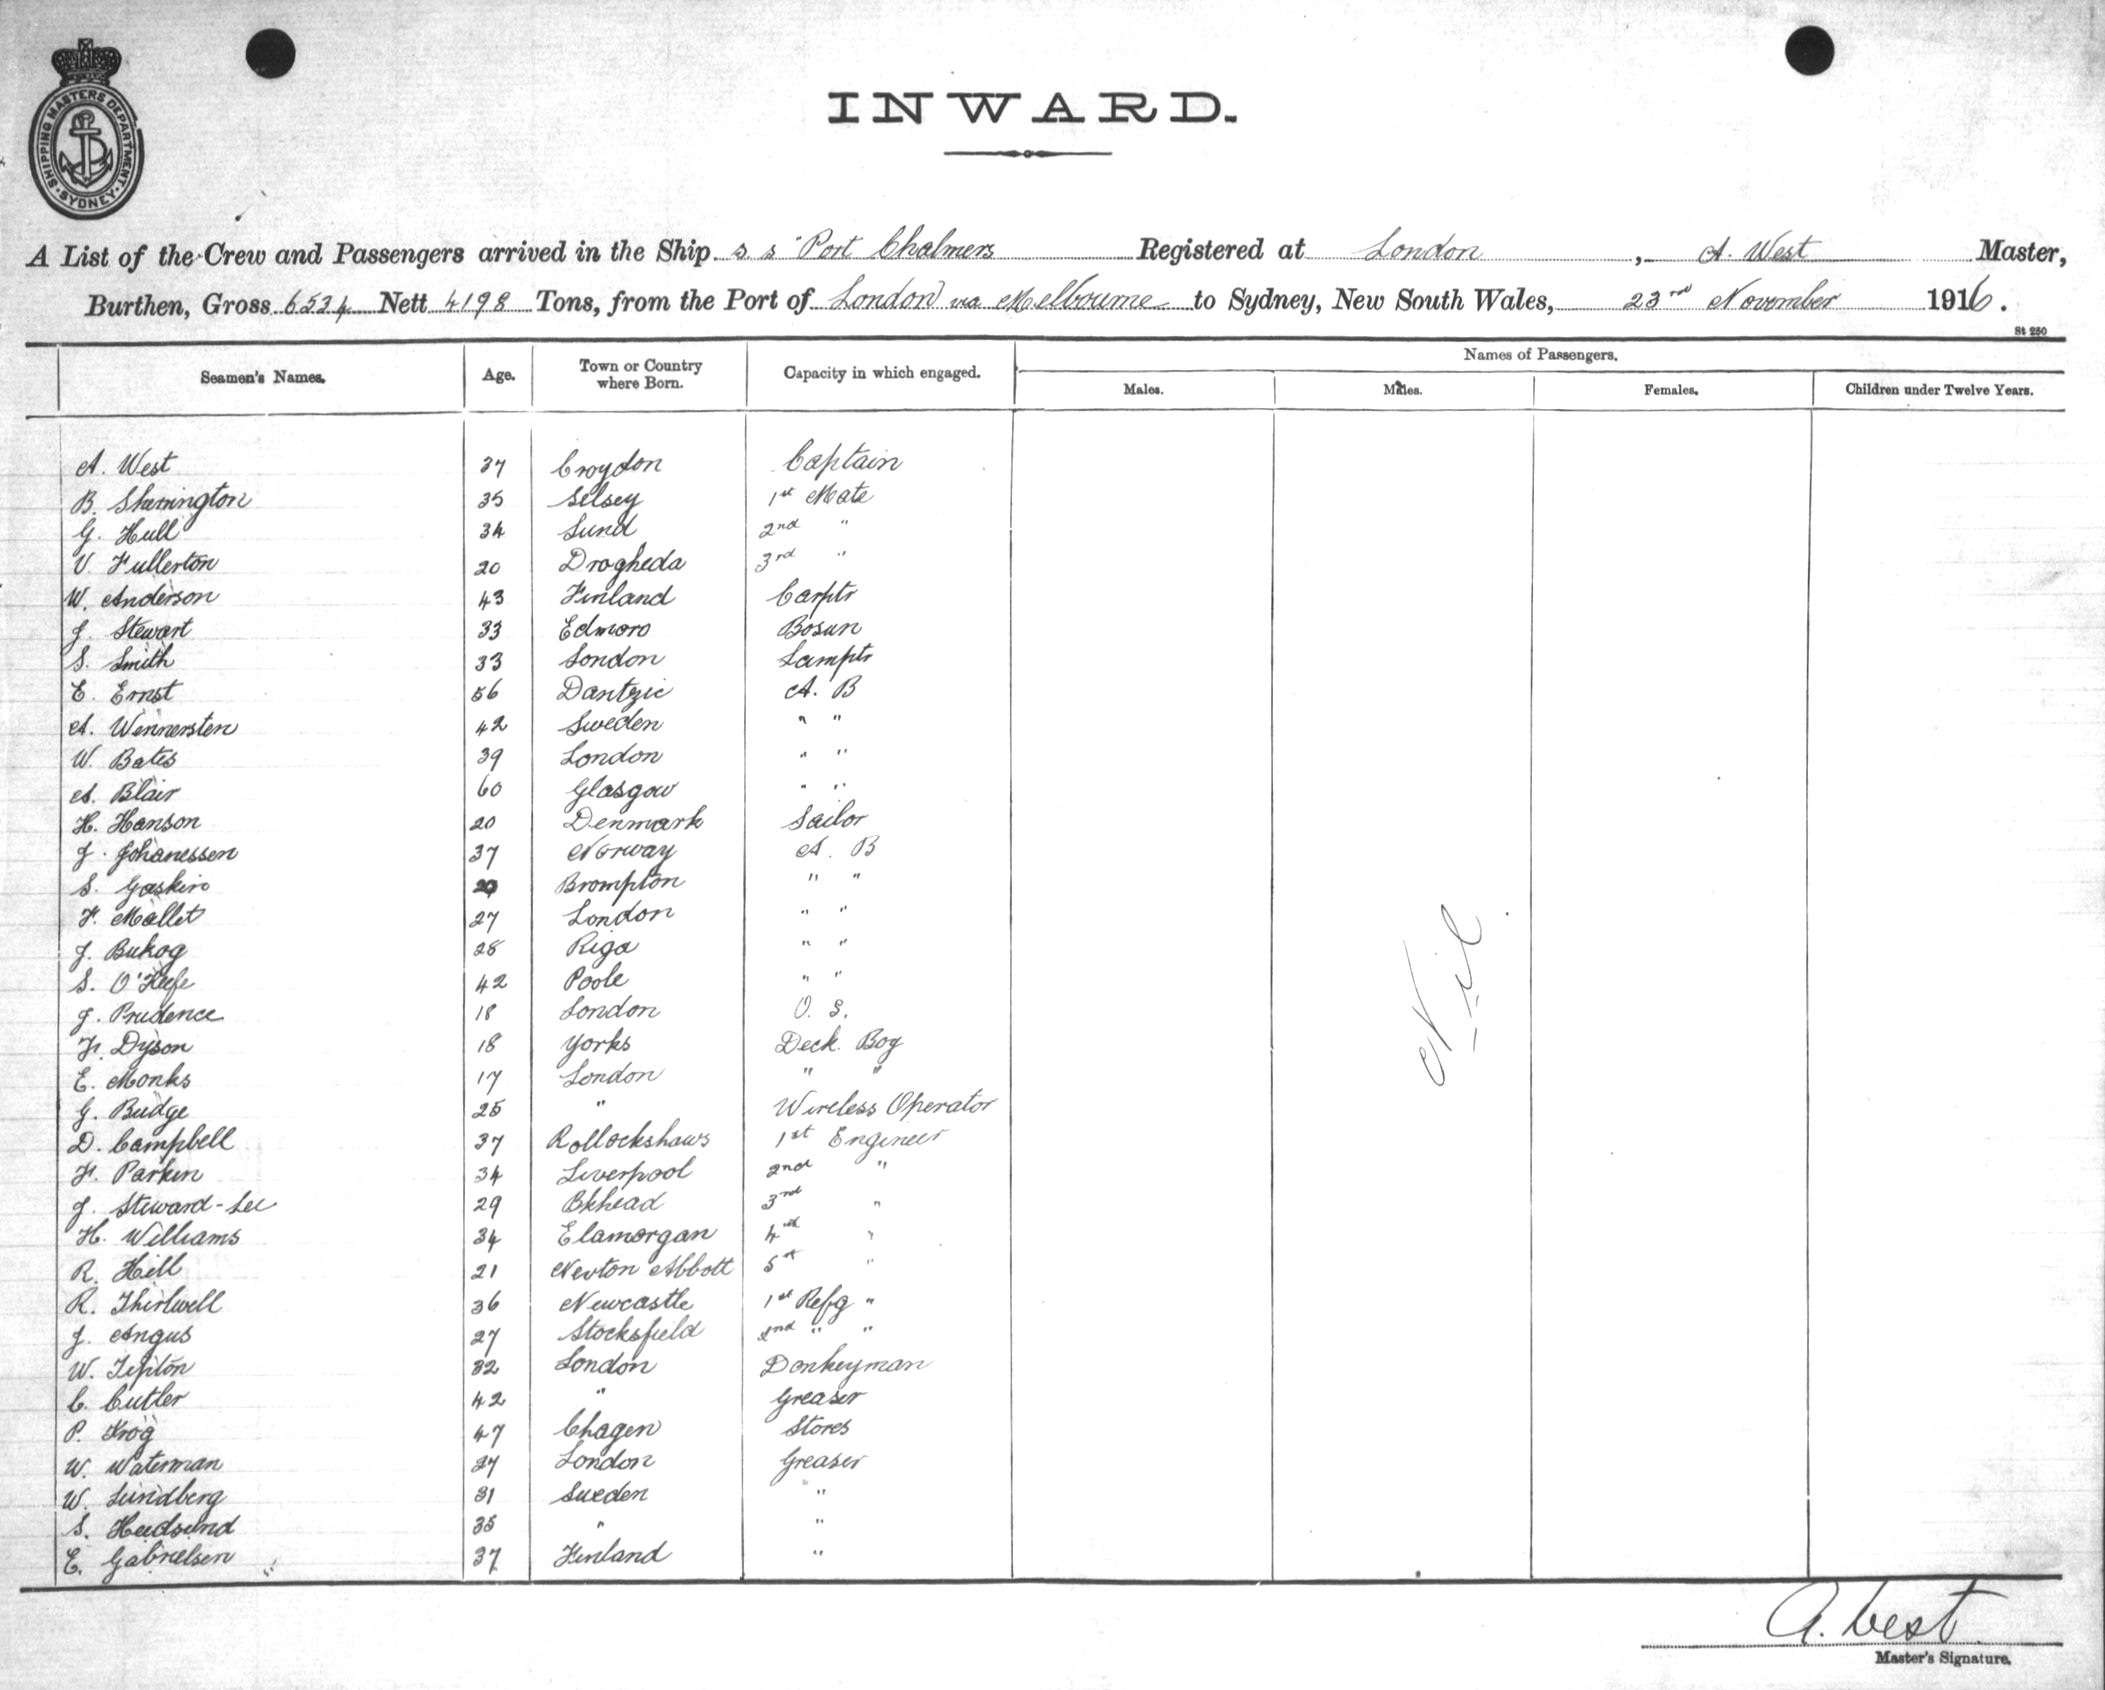 SHIPPING MASTERS DEPARTMENT
SYDNEY
INWARD.
A List of the Crew and Passengers arrived in the Ship s s "Port Chalmers Registered at London, A. West Master,
Burthen, Gross 6534 Nett 4198 Tons, from the Port of London via Melbourne to Sydney, New South Wales, 23rd November 1916.
St 250
Seamen's Names. Age. Town or Country where Born. Capacity in which engaged. Names of Passengers.
Males. Males. Females. Children under Twelve Years.
A. West 37 Croydon Captain
B. Sherrington 35 Selsey 1st Mate
G. Hull 34 Lund 2nd "
V Fullerton 20 Drogheda 3rd "
W. Anderson 43 Finland Carptr
J. Stewart 33 Edmoro Bosun
S. Smith 33 London Lamptr
E. Ernst 56 Dantzic A. B
A. Wennersten 42 Sweden " "
W. Bates 39 London " "
A. Blair 60 Glasgow " "
H. Hanson 20 Denmark Sailor
J. Johanessen 37 Norway A. B
S. Gaskin Brompton " "
F. Mallet 27 London " "
J. Bukog 28 Riga " "
S. O'Keefe 42 Poole " "
J. Prudence 18 London O. S.
F. Dyson 18 Yorks Deck Boy
E. Monks 17 London " "
G. Budge 25 " Wireless Operator
D. Campbell 37 Rollockshaws 1st Engineer
F. Parkin 34 Liverpool 2nd "
J. Steward-Lee 29 Bkhead 3rd "
H. Williams 34 Elamorgan 4th "
R. Hill 21 Newton Abbott 5th "
R. Thirlwell 36 Newcastle 1st Refg "
J. Angus 27 Stocksfield 2nd " "
W. Tipton 32 London Donkeyman
C. Cutler 42 " Greaser
P. Krog 47 Chagen Stores
W. Waterman 27 London Greaser
W. Lundberg 31 Sweden "
S. Hedsund 35 " "
E. Gabrielsen 37 Finland "
Nil.
A. West
Master's Signature.